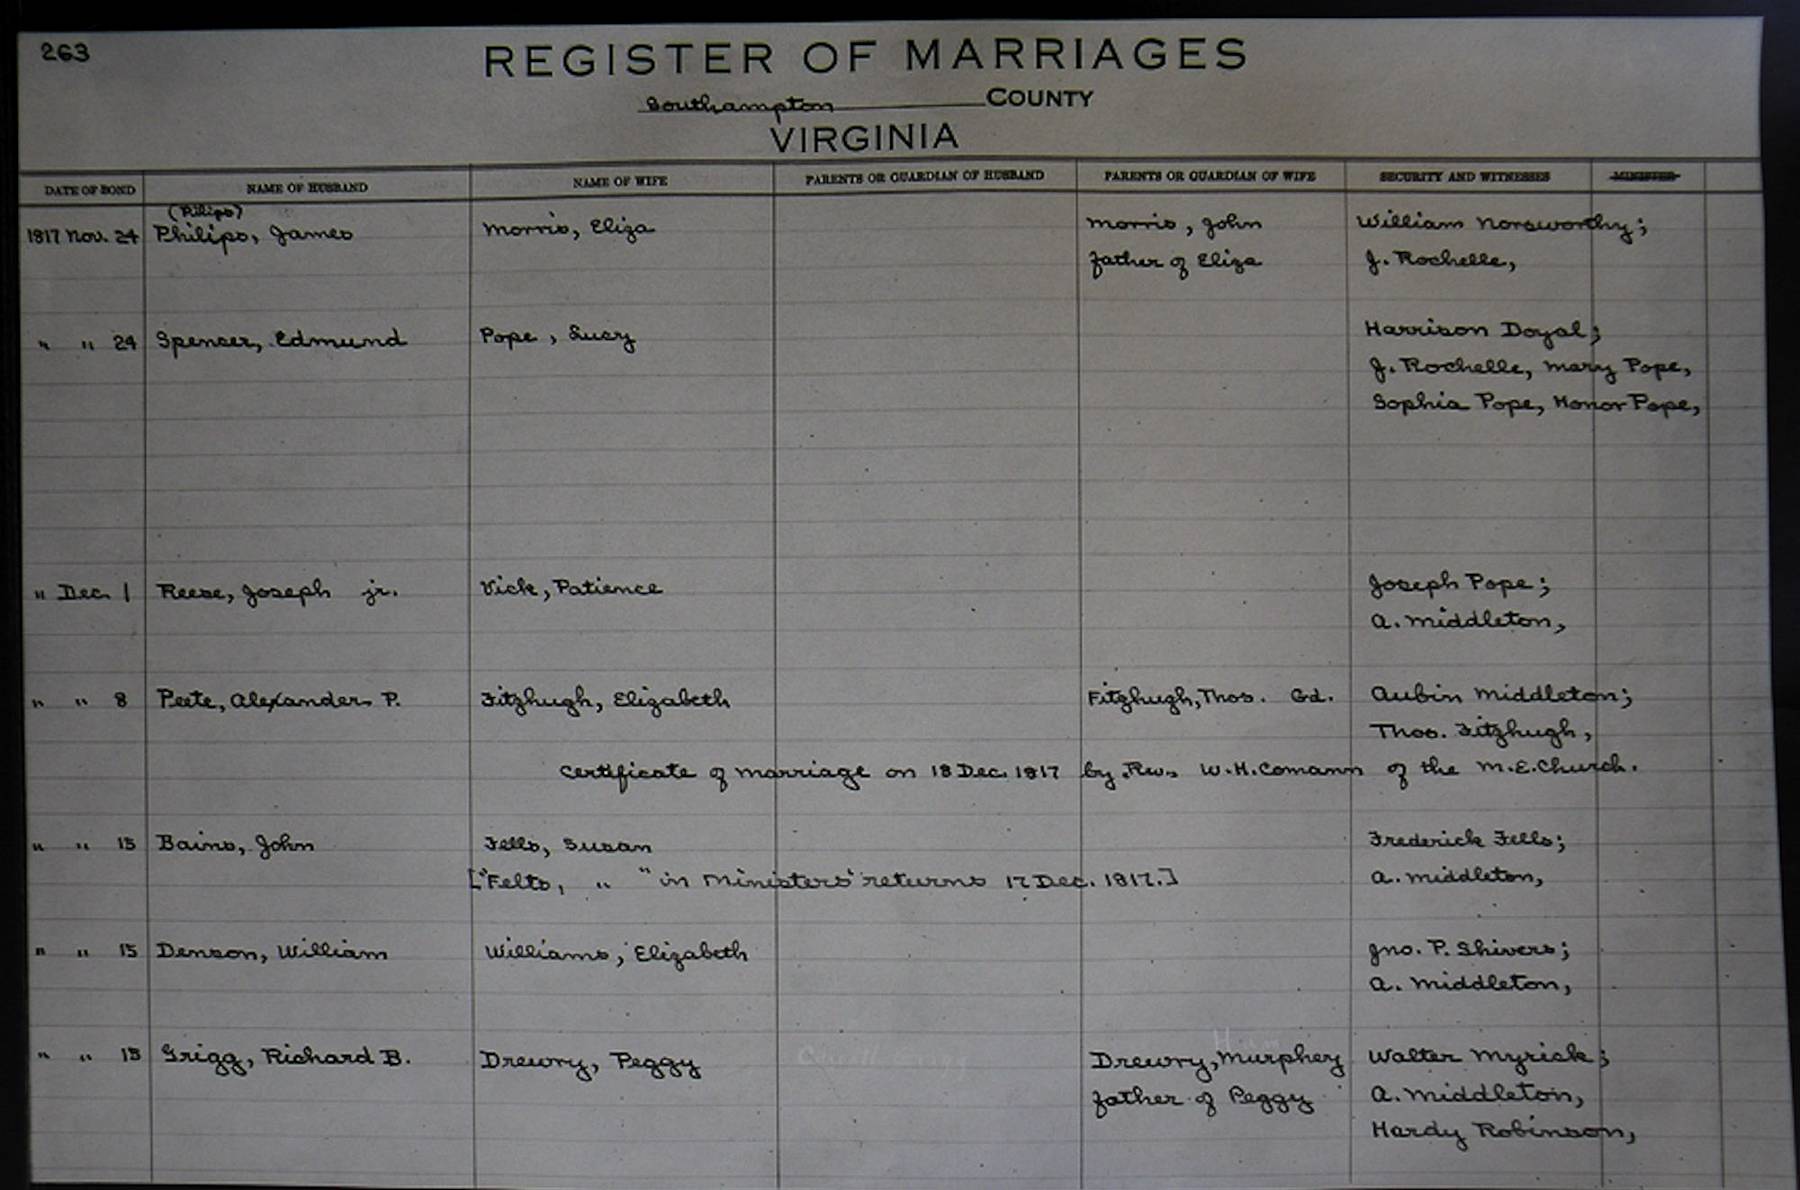 263
REGISTER OF MARRIAGES
Southampton COUNTY
VIRGINIA
DATE OF BOND NAME OF HUSBAND NAME OF WIFE PARENTS OR GUARDIAN OF HUSBAND PARENTS OR GUARDIAN OF WIFE SECURITY AND WITNESSES MINISTER
(Pilips)
1817 Nov. 24 Philips, James Morris, Eliza Morris, John William Norsworthy;
father of Eliza J. Rochelle,
" " 24 Spencer, Edmund Pope, Lucy Harrison Doyal;
J. Rochelle, Mary Pope,
Sophia Pope, Honor Pope,
" Dec. 1 Reese, Joseph jr. Vick, Patience Joseph Pope;
A. Middleton,
" " 8 Peete, Alexander P. Fitzhugh, Elizabeth Fitzhugh, Thos. Gd. Aubin Middleton;
Thos. Fitzhugh,
Certificate of marriage on 18 Dec. 1817 by Rev. W.H. Comann of the M.E. Church.
" " 15 Bains, John Fells, Susan Frederick Fells;
["Felts, " " in Ministers' returns 17 Dec. 1817.] A. Middleton,
" " 15 Denson, William Williams, Elizabeth Jno. P. Shivers;
A. Middleton,
" " 15 Grigg, Richard B. Drewry, Peggy Drewry, Murphey Walter Myrick;
father of Peggy A. Middleton,
Hardy Robinson,